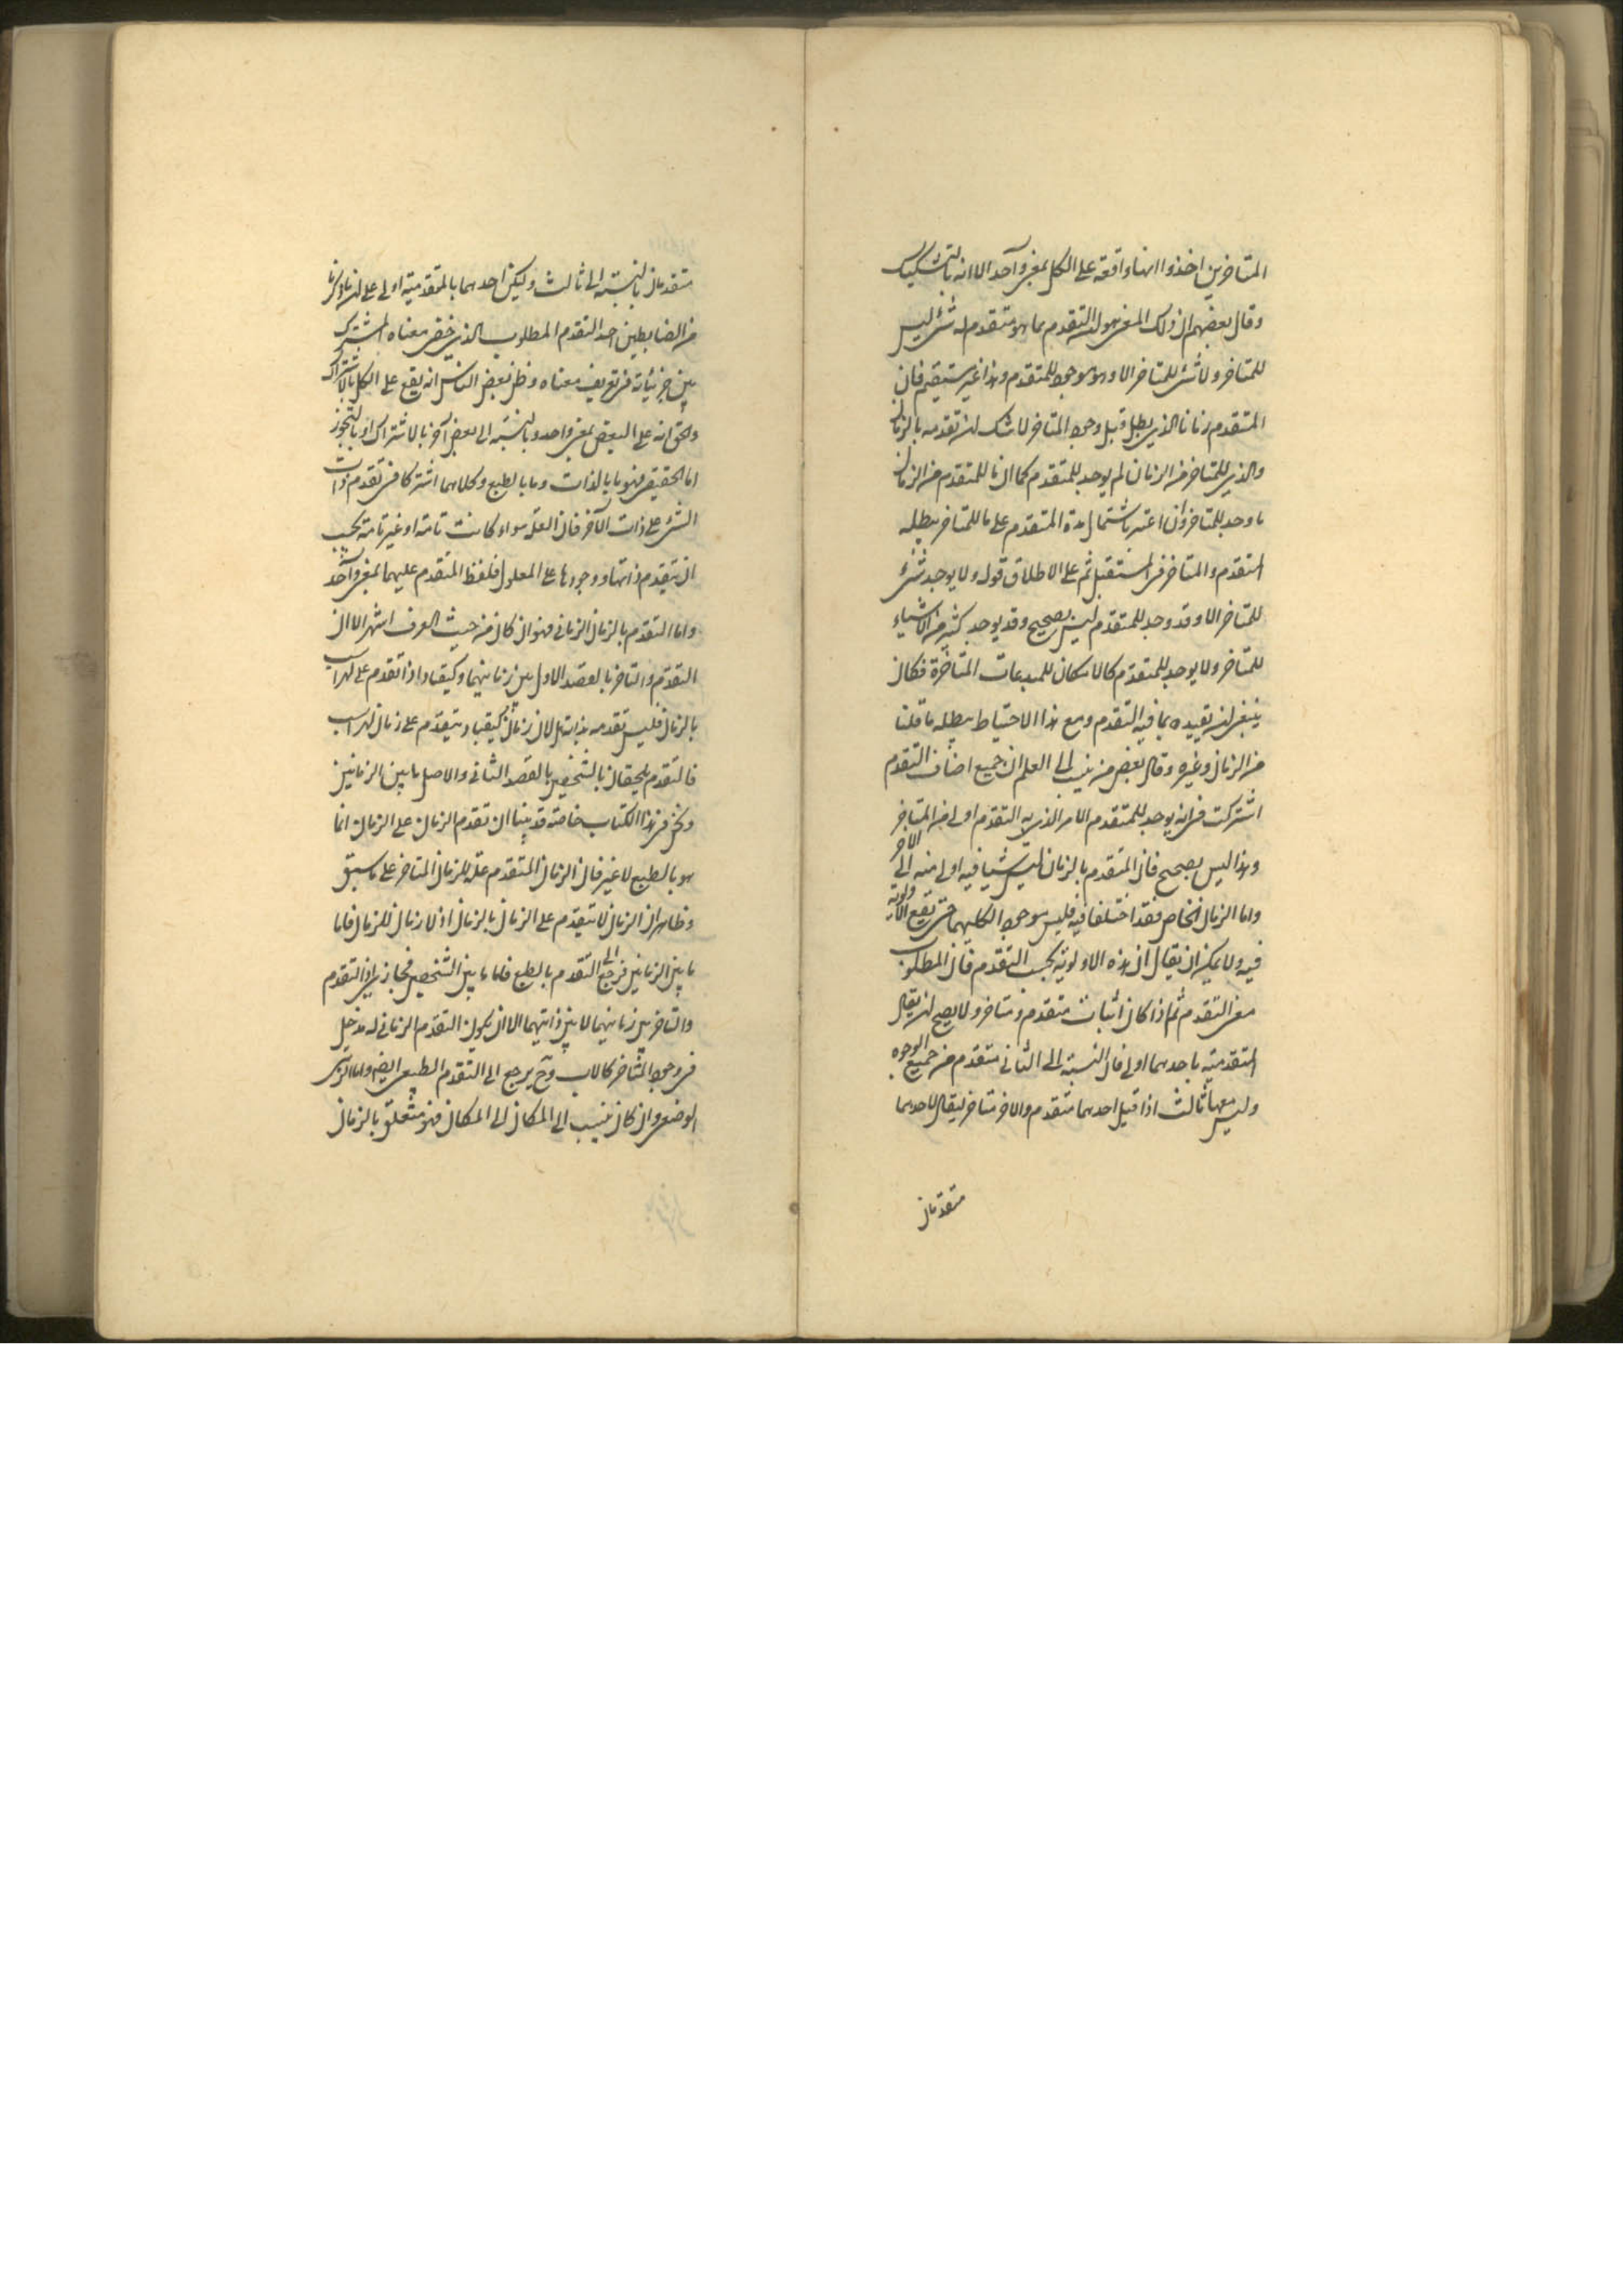 المتاخرين اخذوا انها واقعة على الكل بمعنى واحد الا انه بالتشكيك
وقال بعضهم ان ذلك المعنى هو ان المتقدم بما هو متقدم له شئ ليس
للمتاخر ولا شئ للمتاخر الا وهو موجود للمتقدم وهذا غير مستقيم فان
المتقدم زمانا الذى بطل قبل وجود المتاخر لا شك ان تقدمه بالزمان
والذى للمتاخر من الزمان لم يوجد للمتقدم كما ان ما للمتقدم من الزمان
ما وجد للمتاخر وان اعتبر باشتمال مدة المتقدم على ما للمتاخر يبطله
المتقدم والمتاخر فى المستقبل ثم على الاطلاق قوله ولا يوجد شئ
للمتاخر الا وقد وجد للمتقدم ليس بصحيح وقد يوجد كثير من الاشياء
للمتاخر ولا يوجد للمتقدم كالامكان للمبدعات المتاخرة فكان
ينبغى ان يقيده بما فيه التقدم ومع هذا الاحتياط يبطله ما قلنا
من الزمان وغيره وقال بعض من ينسب الى العلم ان جميع اصناف التقدم
اشتركت فى انه يوجد للمتقدم الامر الذى به التقدم اولى من المتاخر
وهذا ليس بصحيح فان المتقدم بالزمان ليس شيئا فيه اولى منه الى الاخر
واما الزمان الخاص فقد اختلفا فيه فليس موجود الكليهما حتى يقع الاولوية
فيه ولا يمكن ان يقال ان هذه الاولوية بحسب التقدم فان المطلوب
معنى التقدم ثم اذا كان اثبات متقدم ومتاخر ولا يصح ان يقال
المتقدمية باحدهما اولى فان النسبة الى الثانى متقدم من جميع الوجوه
وليس معهما ثالث اذا قيل احدهما متقدم والاخر متاخر ليقال لاحدهما
متقدمان
متقدمان بالنسبة الى ثالث وليكن احدهما بالمتقدمية اولى على ان ما ذكرنا
من الضابطين اخذ التقدم المطلوب الذى خفى معناه المشترك
بين جزئياته فى تعريف معناه وظن بعض الناس انه يقع على الكل بالاشتراك
والحق انه على البعض بمعنى واحد وبالنسبة الى بعض آخر بالاشتراك او بالتجوز
اما الحقيقى فهو ما بالذات وما بالطبع وكلاهما اشتركا فى تقدم ذات
الشئ على ذات الآخر فان العلة سواء كانت تامة او غير تامة يجب
ان يتقدم ذاتها ووجودها على المعلول فلفظ المتقدم عليهما بمعنى واحد
واما التقدم بالزمان الزمانى فهو ان كان من حيث العرف اشهر الا ان
التقدم والتاخر بالقصد الاول بين زمانيهما وكيقباد اذا تقدم على لهراسب
بالزمان فليس تقدمه بذاته بل لان زمان كيقباد يتقدم على زمان لهراسب
فالتقدم يلحقان بالشخصين بالقصد الثانى والاصل ما بين الزمانين
ونحن فى هذا الكتاب خاصة قد بينا ان تقدم الزمان على الزمان انما
هو بالطبع لا غير فان الزمان المتقدم علة للزمان المتاخر على ما سبق
وظاهر ان الزمان لا يتقدم على الزمان بالزمان اذ لا زمان للزمان فاما
ما بين الزمانين فرجع الى التقدم بالطبع فاما ما بين الشخصين فمجازى اذ التقدم
والتاخر بين زمانيهما لا بين ذاتيهما الا ان يكون التقدم الزمانى له مدخل
فى وجود المتاخر كالاب وح يرجع الى التقدم الطبعى ايضا واما الرتبى
الوضعى وان كان ينسب الى المكان الى المكان فهو متعلق بالزمان